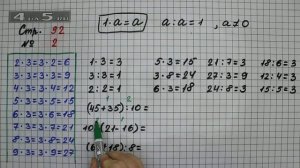 4 на 5.ru
Стр. 92
№ 2
1·a=a
a:a=1 , a≠0
2·3=3·2=6
3·3=3·3=9
4·3=3·4=12
5·3=3·5=15
6·3=3·6=18
7·3=3·7=21
8·3=3·8=24
9·3=3·9=27
1·3=3
3:3=1
2:2=1
5·3=15
3·8=24
6·3=18
21:7=3
27:3=9
24:8=3
18:6=3
12:3=4
15:5=3
(45+35):10=
(21-16)=